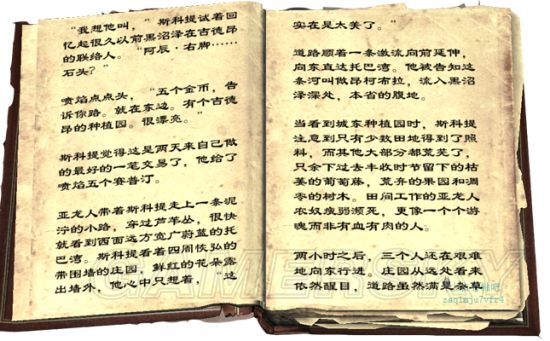 “我想他叫，”斯科提试着回
忆起很久以前黑沼泽在吉德昂
的联络人。“阿辰·右脚……
石头？”
喷焰点点头，“五个金币，告
诉你路。就在东边。有个吉德
昂的种植园。很漂亮。”
斯科提觉得这是两天来自己做
的最好的一笔交易了，他给了
喷焰五个赛普汀。
亚龙人带着斯科提走上一条泥
泞的小路，穿过芦苇丛，很快
就看到西面远方宽广蔚蓝的托
巴湾。斯科提看着四周恢弘的
带围墙的庄园，鲜红的花朵露
出墙外，他心中只想着，“这
实在是太美了。”
道路顺着一条激流向前延伸，
向东直达托巴湾。他被告知这
条河叫做昂柯布拉，流入黑沼
泽深处，本省的腹地。
当看到城东种植园时，斯科提
注意到只有少数田地得到了照
料，而其他大部分都荒芜了，
只余下过去丰收时节留下的枯
萎的葡萄藤，荒弃的果园和凋
零的树木。田间工作的亚龙人
农奴疲弱濒死，更像一个个游
魂而非有血有肉的人。
两小时之后，三个人还在艰难
地向东行进，庄园从远处看来
依然醒目，道路虽然满是杂草
GAMERSKY
zaq1mju7vfr4